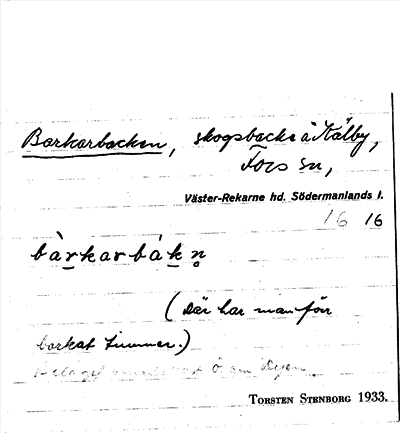 Barkarbacken, skogsbacke å Kälby,
Fors sn,
Väster-Rekarne hd. Södermanlands l.
16 16
bàrkarbákn̥
(där har man förr
barkat timmer.)
ö om
TORSTEN STENBORG 1933.